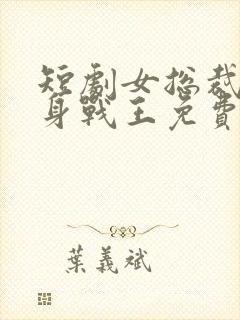 短劇女總裁
身戰王免費
葉義斌